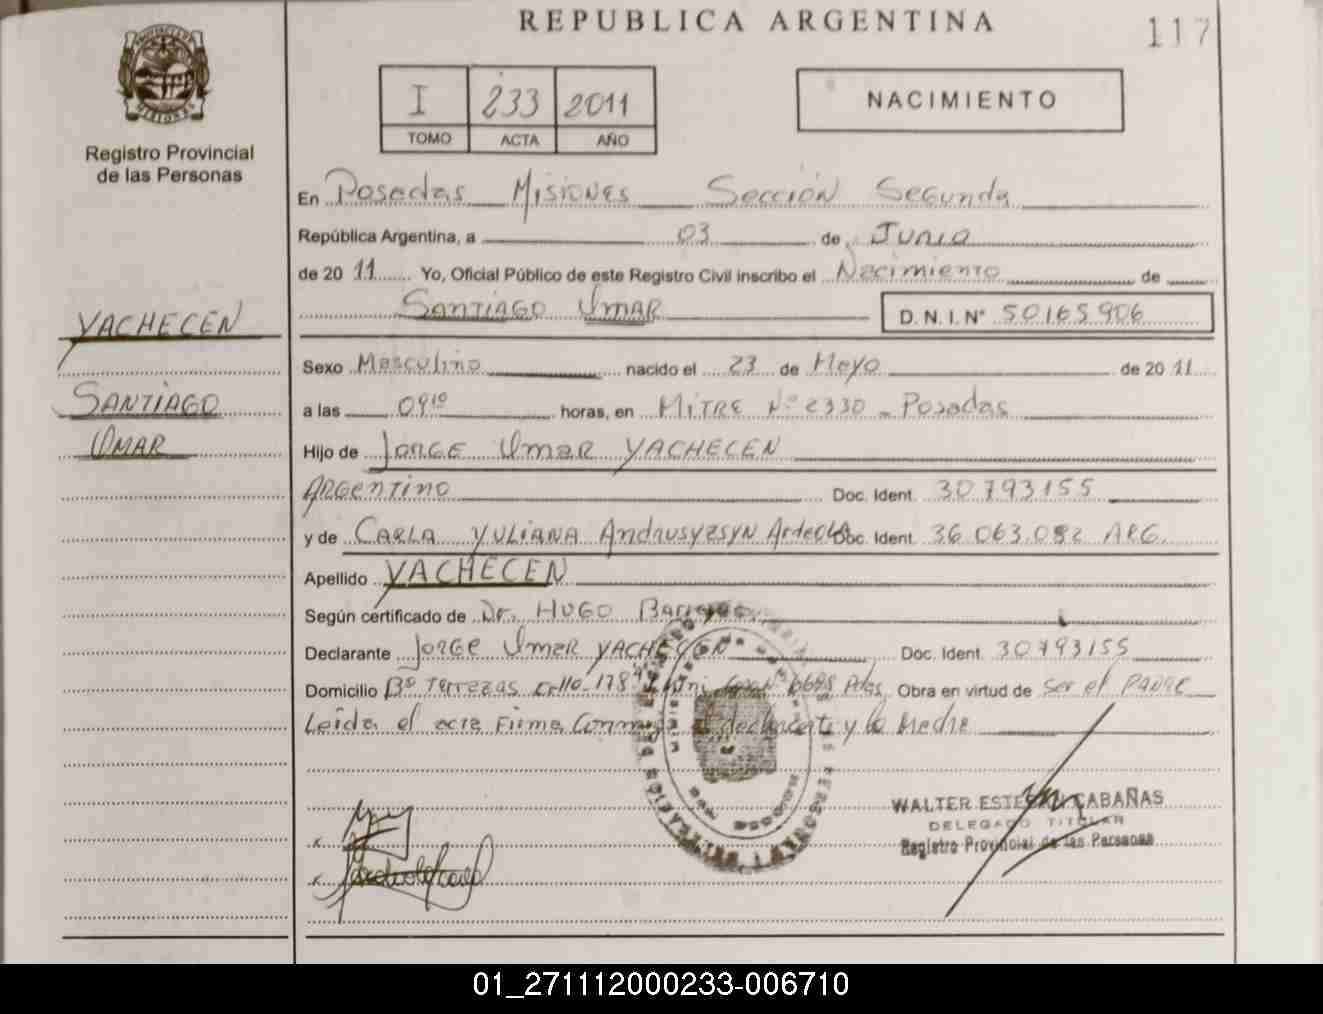 REPUBLICA ARGENTINA
117
PROVINCIA DE
MISIONES
Registro Provincial
de las Personas
I 233 2011
TOMO ACTA AÑO
NACIMIENTO
En Posadas Misiones Sección Segunda
República Argentina, a 03 de Junio
de 2011 Yo, Oficial Público de este Registro Civil inscribo el Nacimiento de
Santiago Umar D.N.I.Nº 50165906
YACHECEN
SANTIAGO
UMAR
Sexo Masculino nacido el 23 de Mayo de 2011
a las 09¹⁰ horas, en MITRE Nº 2330 - Posadas
Hijo de Jorge Umar YACHECEN
Argentino Doc. Ident. 30793155
y de CARLA YULIANA Doc. Ident. 36.063.082 ARG.
Apellido YACHECEN
Según certificado de Dr. HUGO
Declarante Jorge Umar YACHECEN Doc. Ident. 30793155
Domicilio Bº Terrazas Calle 178 6698 Pdas Obra en virtud de ser el PADRE
Leída el acta Firma Conmigo el declarante y la Madre
WALTER ESTEBAN CABAÑAS
DELEGADO TITULAR
Registro Provincial de las Personas
01_271112000233-006710